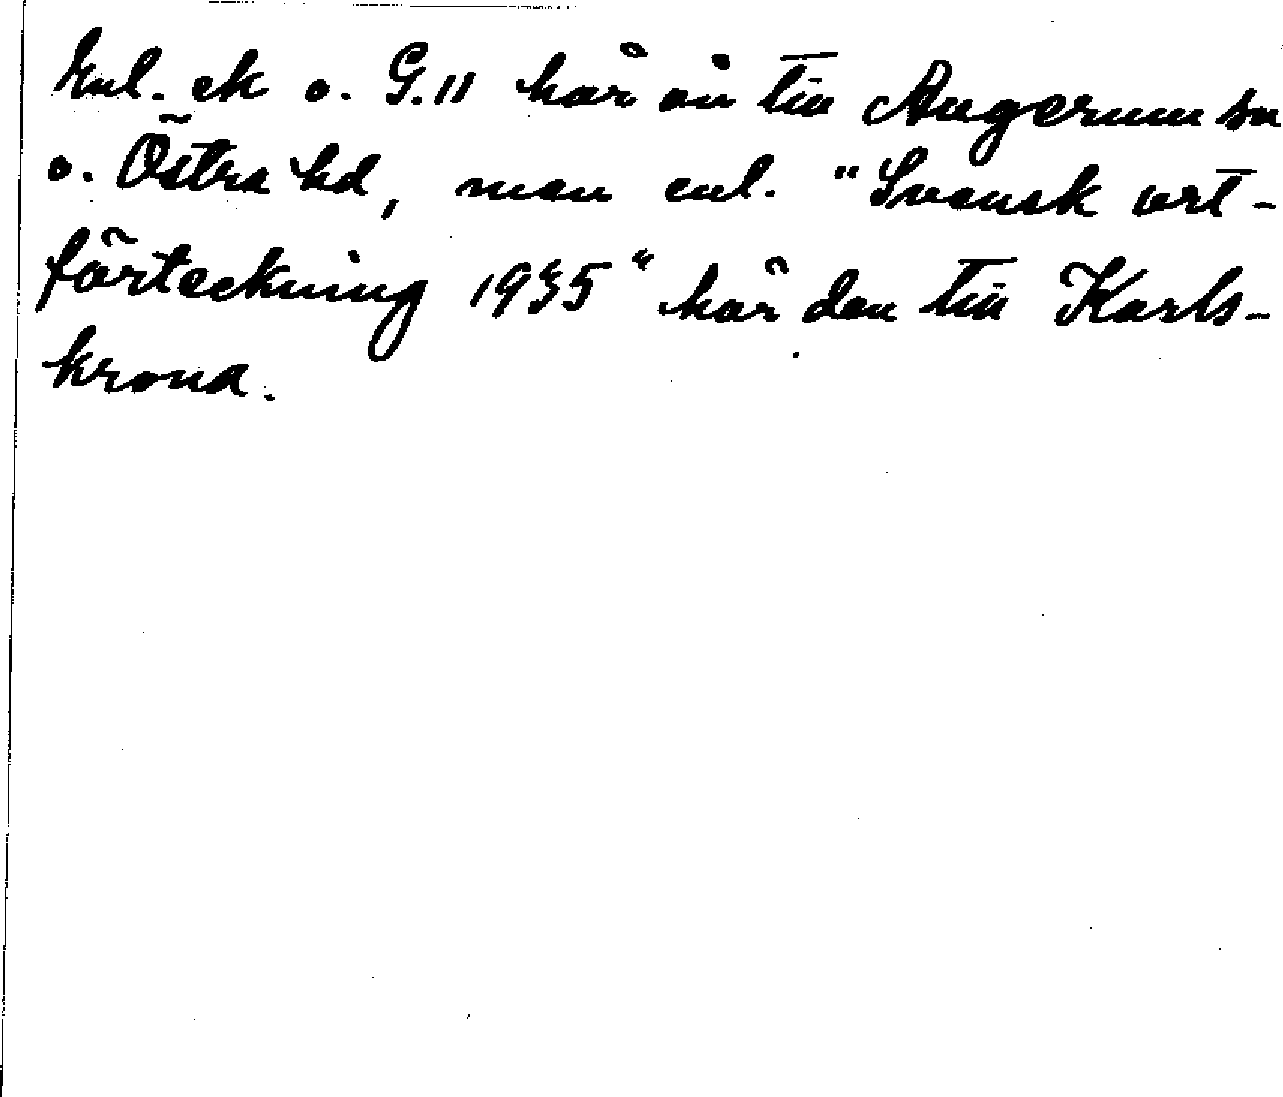 Enl. ek o. G.U hör ön till Augerum sn
o. Östra hd, men enl. "Svensk ort-
förteckning 1935" hör den till Karls-
krona.